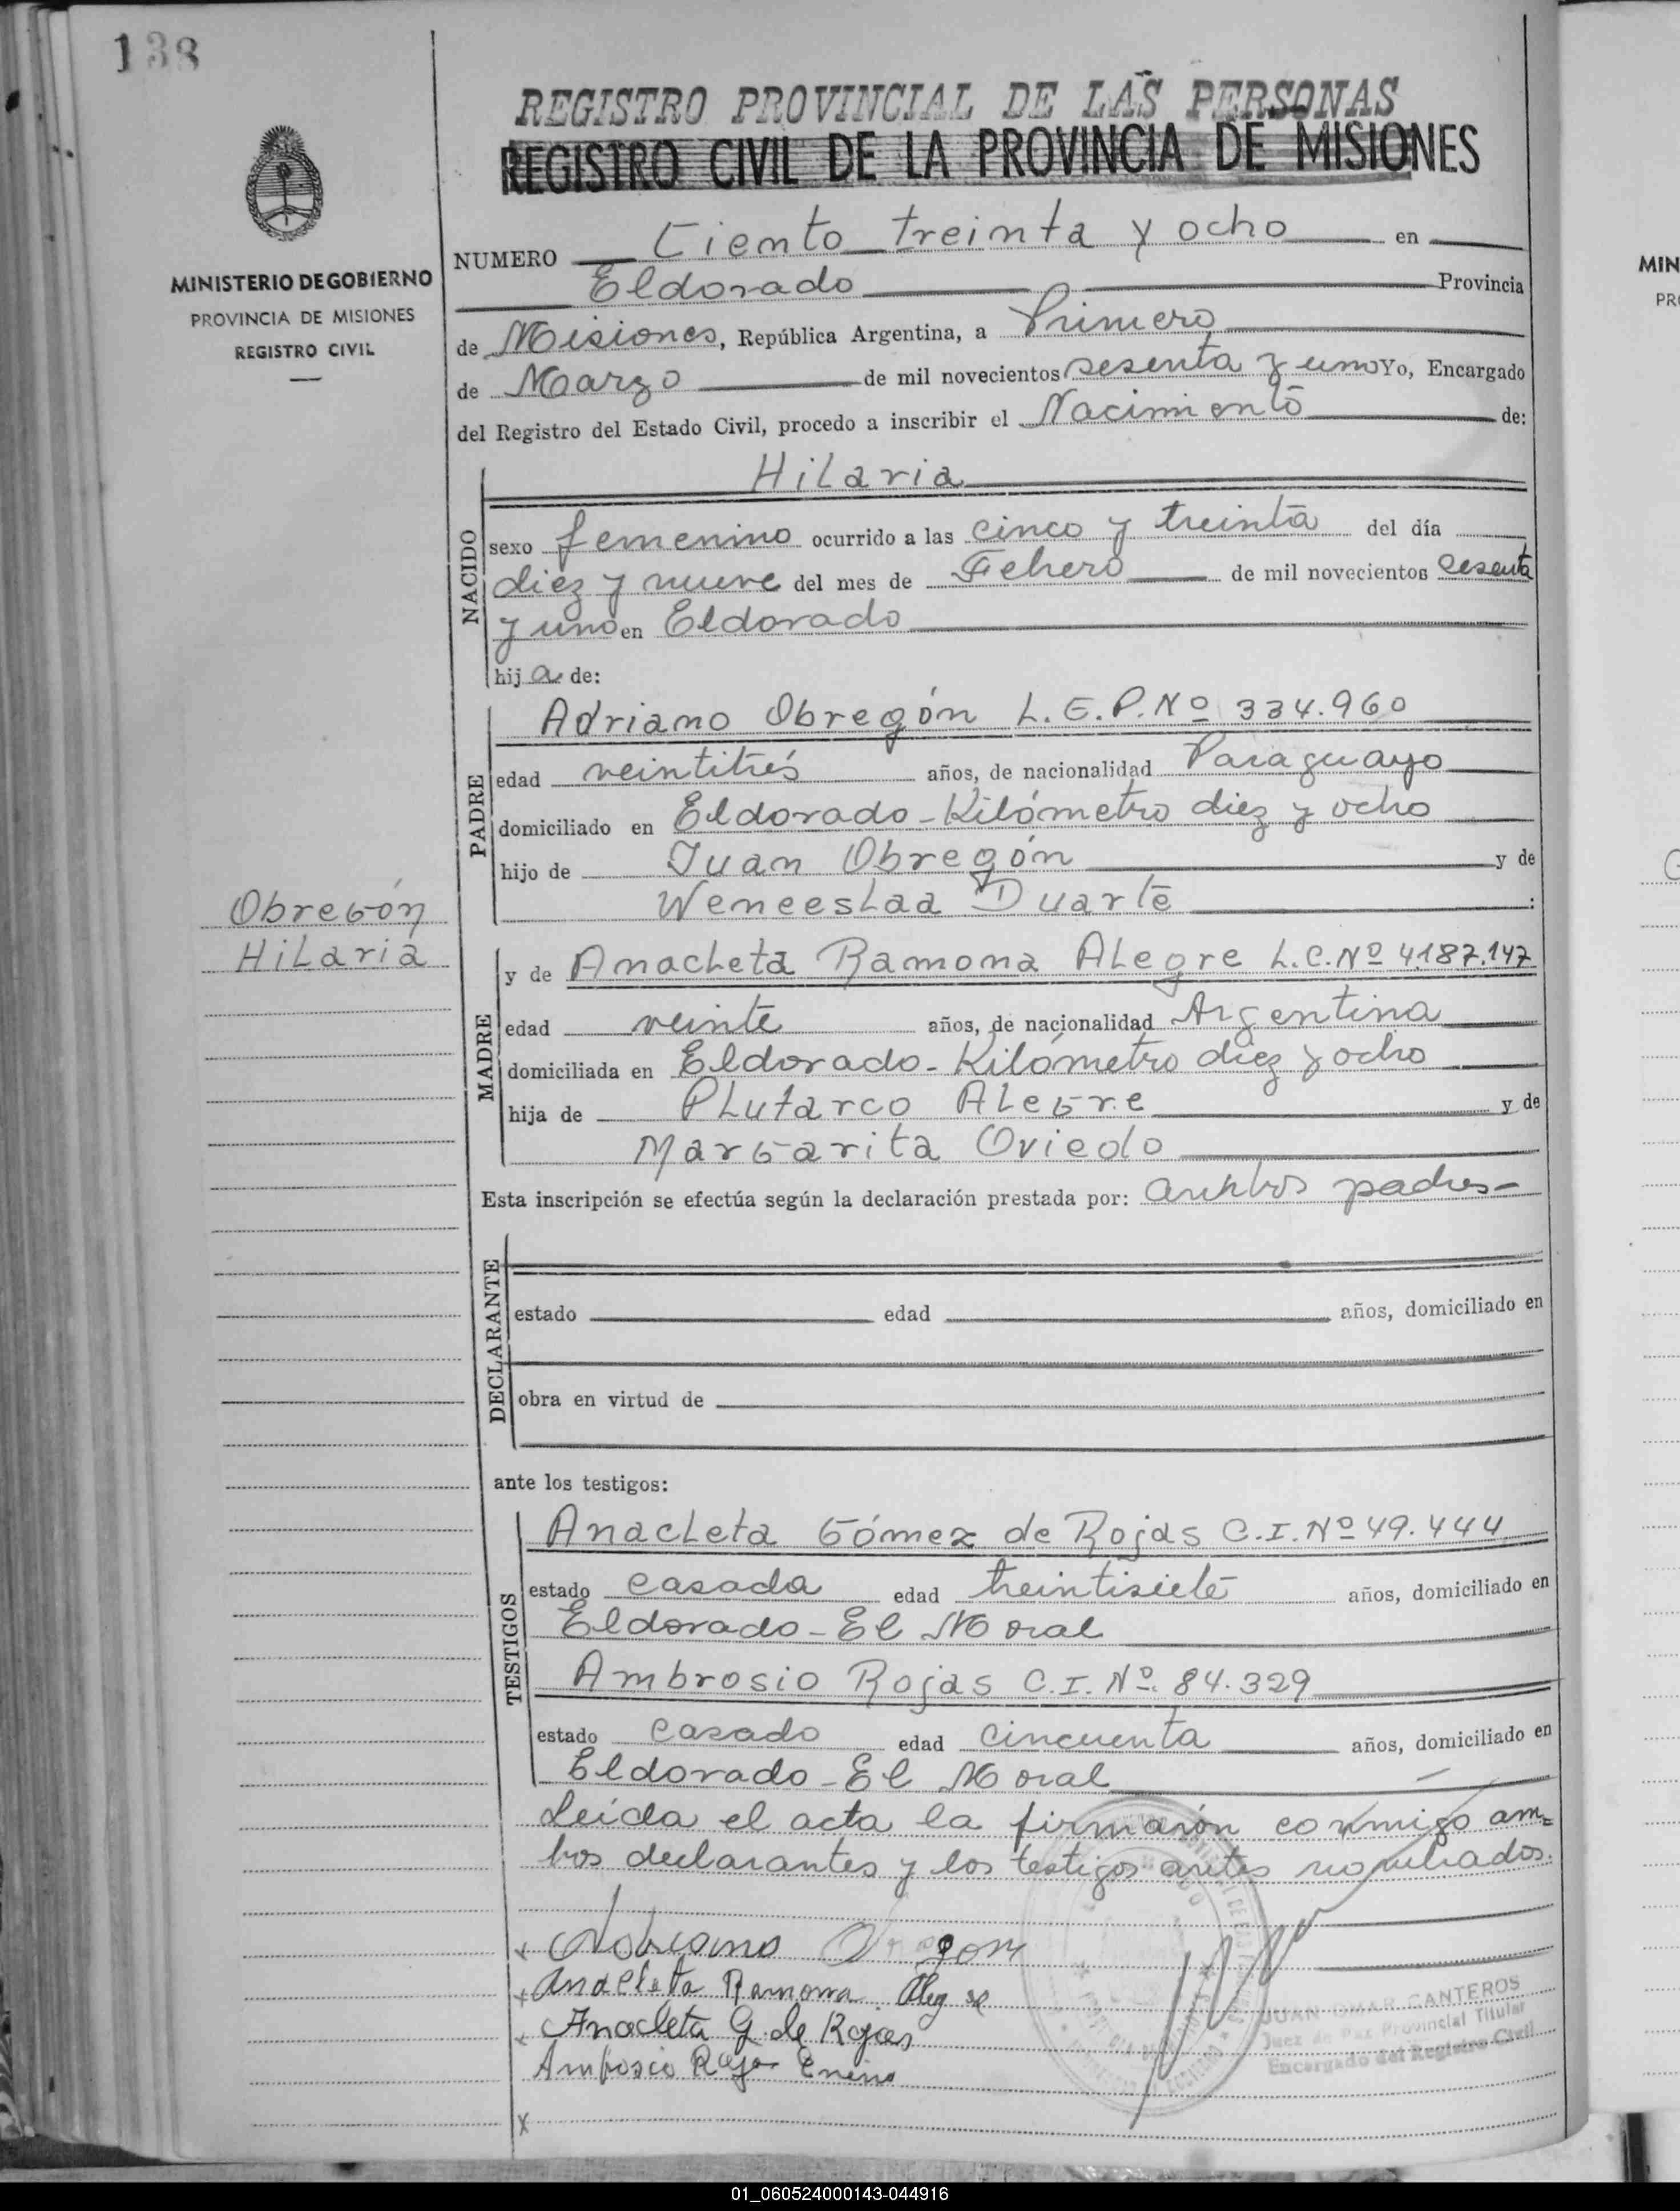 138
REGISTRO PROVINCIAL DE LAS PERSONAS
REGISTRO CIVIL DE LA PROVINCIA DE MISIONES
MINISTERIO DE GOBIERNO
PROVINCIA DE MISIONES
REGISTRO CIVIL
NUMERO Ciento treinta y ocho en
Eldorado Provincia
de Misiones, República Argentina, a Primero
de Marzo de mil novecientos sesenta y uno Yo, Encargado
del Registro del Estado Civil, procedo a inscribir el Nacimiento de:
NACIDO
Hilaria
sexo femenino ocurrido a las cinco y treinta del día
diez y nueve del mes de Febrero de mil novecientos sesenta
y uno en Eldorado
hija de:
PADRE
Adriano Obregón L.E.P.Nº 334.960
edad veintitrés años, de nacionalidad Paraguayo
domiciliado en Eldorado-Kilómetro diez y ocho
hijo de Juan Obregón y de
Wenceslaa Duarte
Obregón
Hilaria
MADRE
y de Anacleta Ramona Alegre L.C.Nº 4.187.147
edad veinte años, de nacionalidad Argentina
domiciliada en Eldorado-Kilómetro diez y ocho
hija de Plutarco Alegre y de
Margarita Oviedo
Esta inscripción se efectúa según la declaración prestada por: ambos padres-
DECLARANTE
estado edad años, domiciliado en
obra en virtud de
ante los testigos:
TESTIGOS
Anacleta Gómez de Rojas C.I.Nº 49.444
estado casada edad treintisiete años, domiciliado en
Eldorado-El Moral
Ambrosio Rojas C.I.Nº 84.329
estado casado edad cincuenta años, domiciliado en
Eldorado-El Moral
Leída el acta la firmarón conmigo am=
bos declarantes y los testigos antes nombrados.
Anacleta Ramona Alegre
Anacleta G. de Rojas
JUAN OMAR CANTEROS
Juez de Paz Provincial Titular
Encargado del Registro Civil
x
MIN
PR
01_060524000143-044916